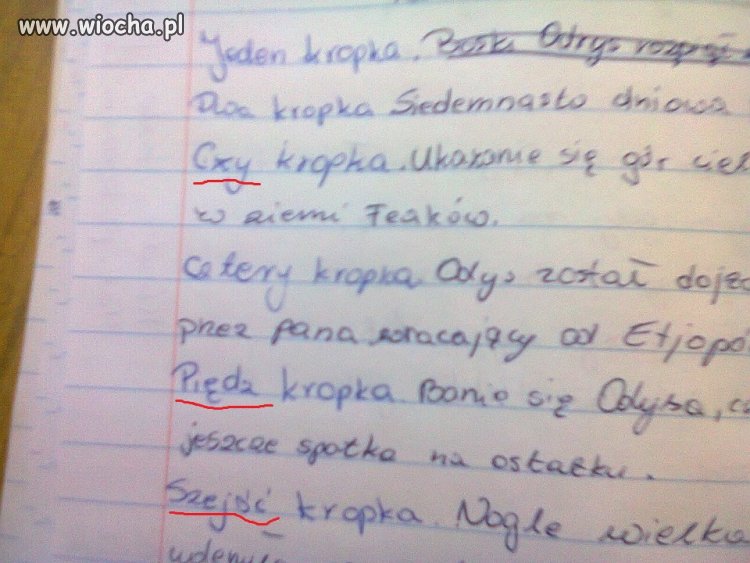 www.wiocha.pl
Jeden kropka. Boski Odys
Dwa kropka Siedemnasto dniowa
Czy kropka. Ukazanie się gór
w ziemi Feaków.
Cztery kropka Odys został
przez pana wracający od
Piędz kropka. Boanie się Odysa,
jeszcze spotka na ostatku.
Szejść kropka. Nagle wielka